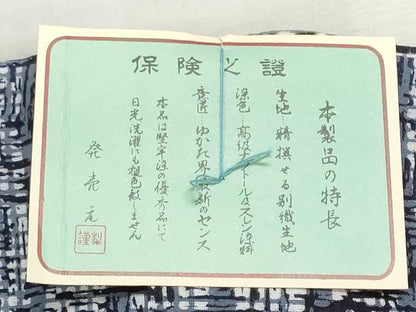 保険之證
本製品の特長
生地…特撰せる別織生地
染色…高級ナフトール及スレン染料
意匠…ゆかた界最新のセンス
本品は堅牢染の優秀品にて
日光洗濯にも褪色致しません
発売元
謹製